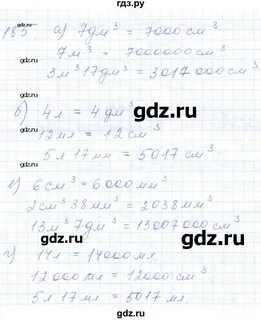 гдз.ру
185 а) 7дм³ = 7000 см³
7м³ = 7000000 см³
3м³ 17дм³ = 3017000 см³
б) 4л = 4 дм³
12мл = 12 см³
5л 17мл = 5017 см³
6 см³ = 6000 мм³
2см³ 38мм³ = 2038 мм³
13м³ 7дм³ = 13007000 см³
г) 14л = 14000 мл.
12000 мл = 12000 см³
5л 17мл = 5017 мл.
gdz.ru
gdz.ru
gdz.ru
gdz.ru